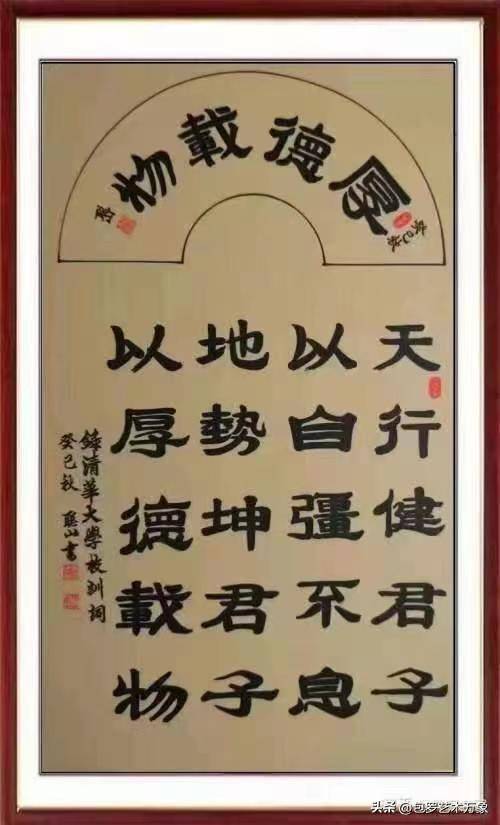 癸巳秋
厚德載物
天行健君子
以自彊不息
地勢坤君子
以厚德載物
錄清華大學校訓詞
癸巳秋 山書
头条 @包罗艺术万象